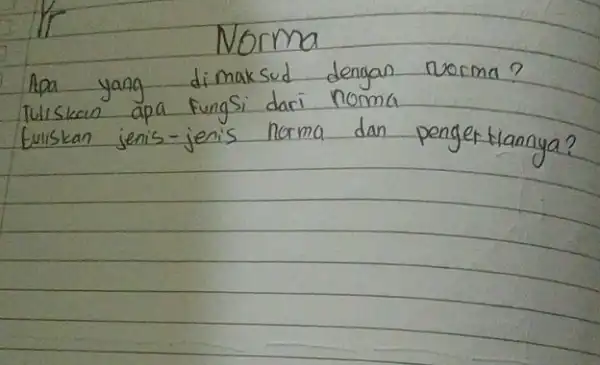 Pr
Norma
Apa yang dimaksud dengan norma?
Tuliskan apa fungsi dari norma
tuliskan jenis-jenis norma dan pengertiannya?